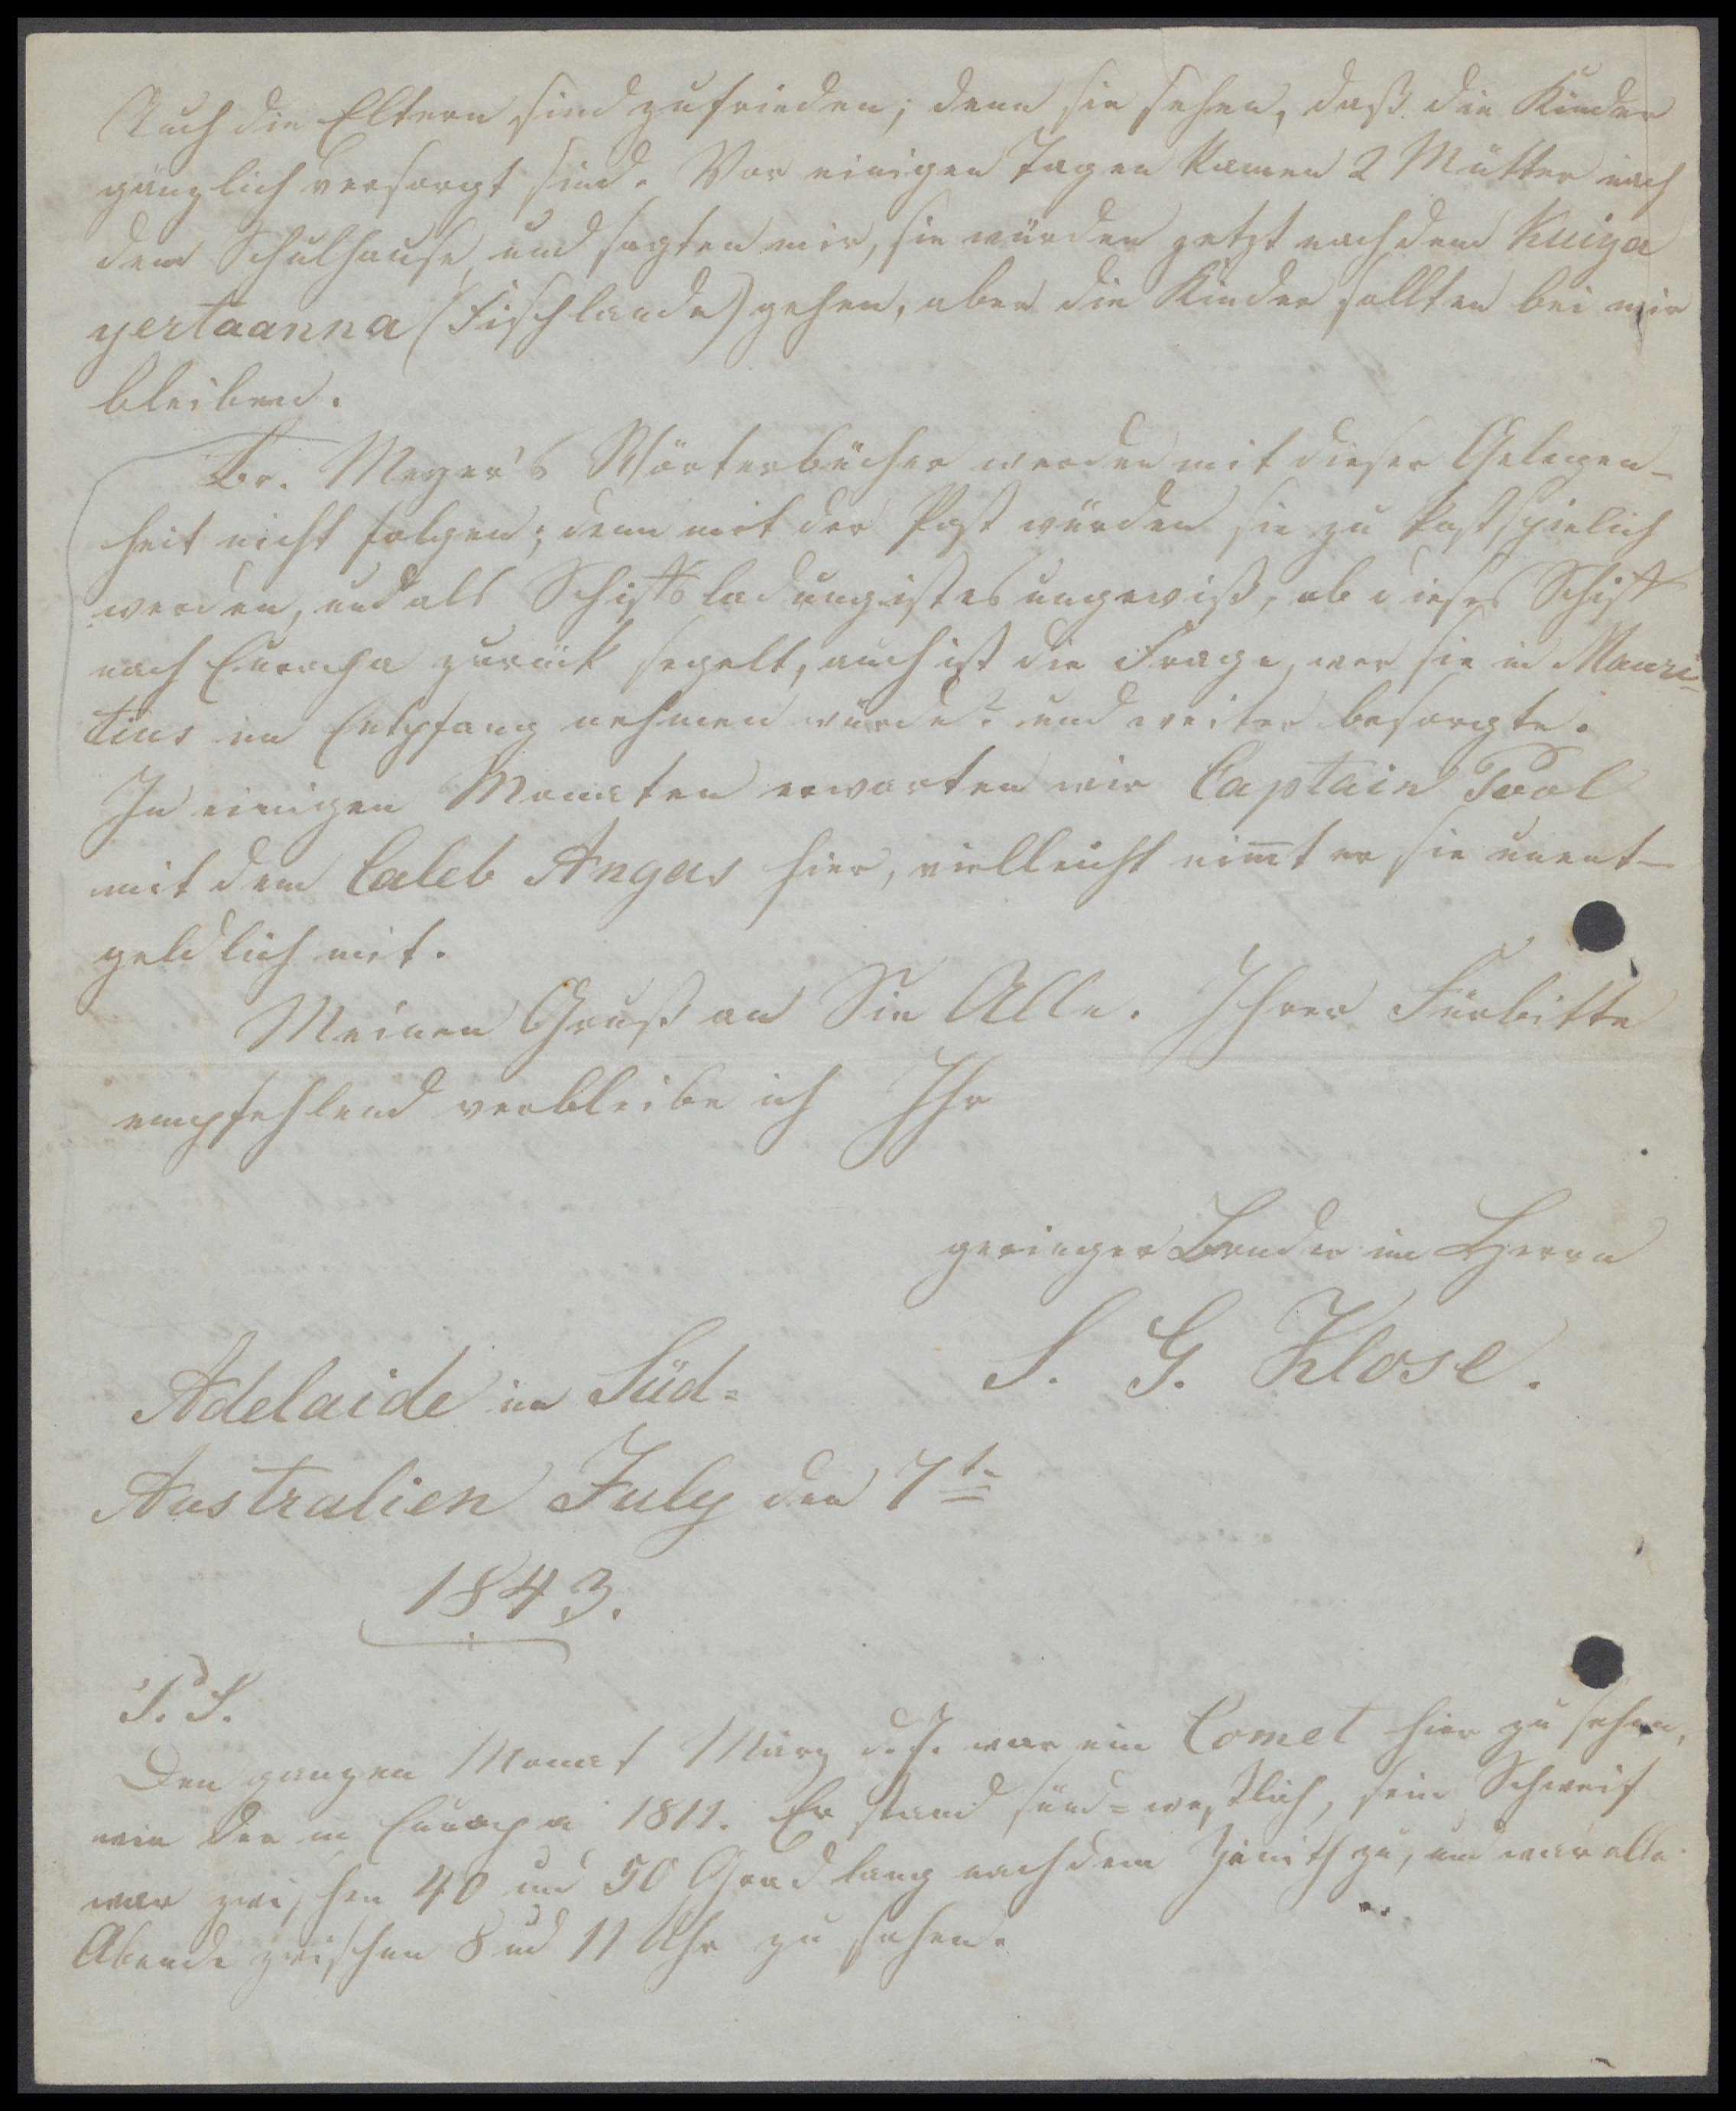 Auch die Eltern sind zufrieden; denn sie sehen, daß die Kinder
gänzlich versorgt sind. Vor einigen Tagen kamen 2 Mütter nach
dem Schulhause, und sagten mir, sie würden jetzt nach dem Kuiya
yertaanna (Fischlande) gehen, aber die Kinder sollten bei mir
bleiben.
Br. Meyer's Wörterbücher werden mit dieser Gelegen-
heit nicht folgen; denn mit der Post würden sie zu kostspielich
werden, und als Schiffsladung ist es ungewiß, ob dieses Schiff
nach Europa zurück segelt, auch ist die Frage, wer sie in Mauri-
tius en Entpfang nehmen würde? und weiter besorgte.
In einigen Monaten erwarten wir Captain Pool
mit dem Caleb Angas hier, vielleicht nim̄t er sie unent-
geldlich mit.
Meinen Gruß an Sie Alle. Ihrer Fürbitte
empfehlend verbleibe ich Ihr
geringer Bruder im Herrn
S. G. Klose.
Adelaide in Süd=
Australien July den 7te
1843.
P. S.
Den ganzen Monat März d. J. war ein Comet hier zu sehen,
wie der in Europa 1811. Er stand süd=westlich, sein Schweif
war zwischen 40 und 50 Grad lang nach dem Zenith zu, und war alle
Abende zwischen 8 und 11 Uhr zu sehen.